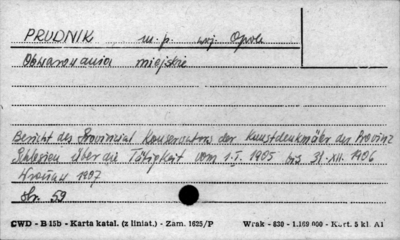 PRUDNIK, m.p. woj. Opole
Obwarowania miejskie
Bericht des Provinzial Konservators der Kunstdenkmäler der Provinz
Schlesien über die Tätigkeit vom 1.I. 1905 bis 31.XII. 1906
1907
Str. 59
CWD - B 15b - Karta katal. (z liniat.) - Zam. 1625/P Wrak - 830 - 1.169 000 - Kart. 5 kl. A1